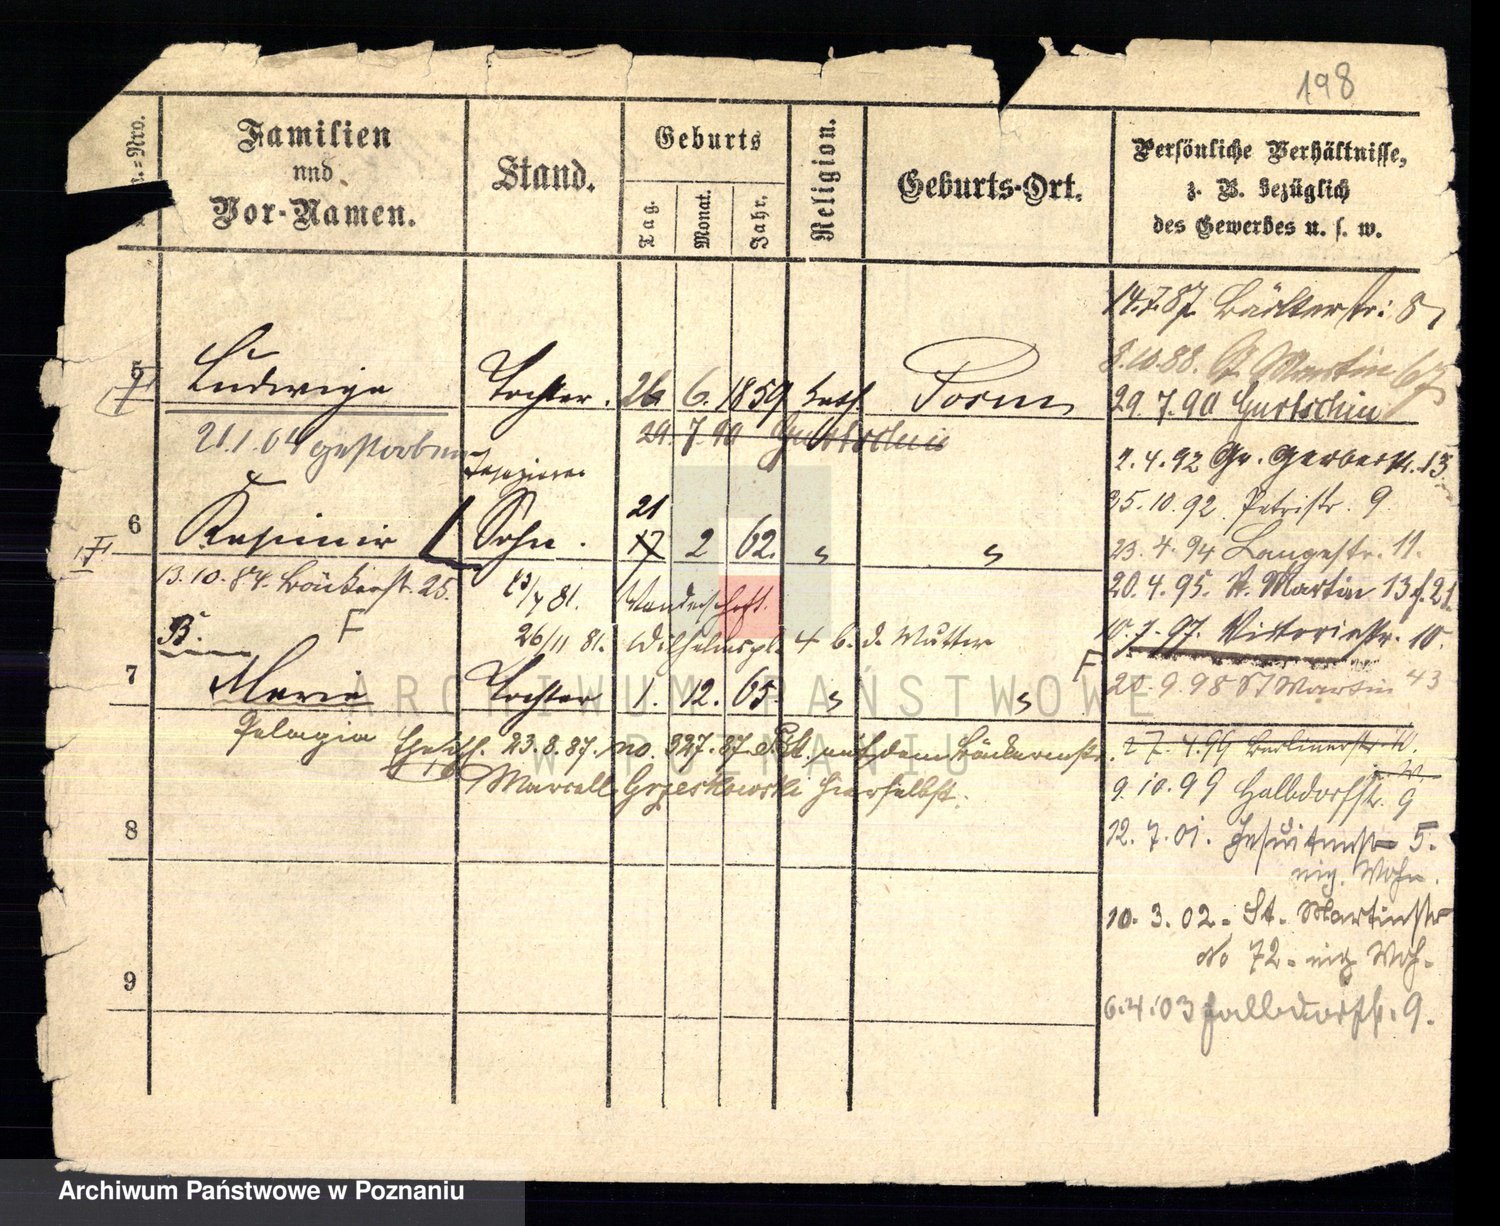 198
Nro.
Familien
und
Vor-Namen.
Stand.
Geburts
Tag.
Monat.
Jahr.
Religion.
Geburts-Ort.
Persönliche Verhältnisse,
z. B. bezüglich
des Gewerbes u. s. w.
14.7.87 Bäckerstr: 8
8.10.88. St Martin 67
5 Ludwiga Tochter. 26 6. 1859 kath. Posen
29.7.90 Gurtschin
21.1.04 gestorben
29.7.90 Gurtschin
2.4.92 Gr. Gerberstr. 13
25.10.92 Petristr. 9.
6 Kasimir Sohn. 21 17 2 62. " "
23.4.94 Langestr. 11.
13.10.84. Bäckerst. 25.
13/7 81. Wanderschaft.
20.4.95. St. Martin 13
B. F
26/11 81. Wilhelmspl. 4 b. d. Mutter
10.7.97. Victoriastr. 10.
F
7 Maria Tochter 1. 12. 65. " "
20.9.98 St Martin 43
Pelagia Ehesch. 23.8.87. no. 327.87 mit dem
27.4.99 Berlinerstr. 10.
Marcell Grzeskowski hierselbst.
9.10.99 Halbdorfstr. 9
8
12.7.01. Jesuitenstr 5.
Wohn.
10.3.02. St. Martinstr
No 72. Woh.
9
6.4.03 Halbdorfstr. 9.
ARCHIWUM PAŃSTWOWE
W POZNANIU
Archiwum Państwowe w Poznaniu